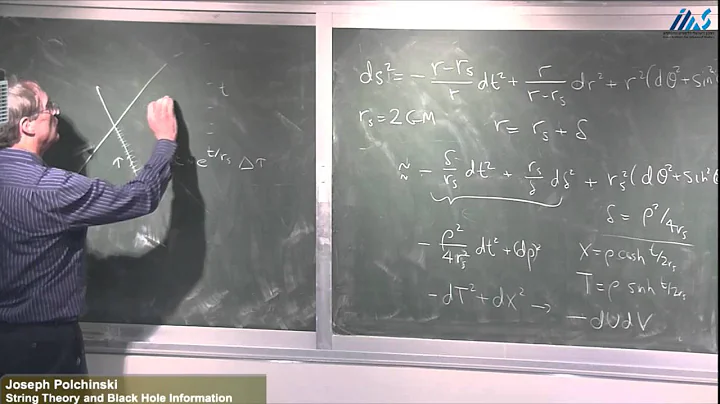 t
e^{t/r_s} Δτ
↑
ds² = - \frac{r-r_s}{r} dt² + \frac{r}{r-r_s} dr² + r²(dθ²+sin²
r_s = 2GM
r = r_s + δ
≈ - \frac{δ}{r_s} dt² + \frac{r_s}{δ} dδ² + r_s²(dθ²+sin²θ
δ = ρ²/4r_s
- \frac{ρ²}{4r_s²} dt² + (dρ)²
X = ρ cosh t/2r_s
T = ρ sinh t/2r_s
-dT² + dX² → -dUdV
Joseph Polchinski
String Theory and Black Hole Information